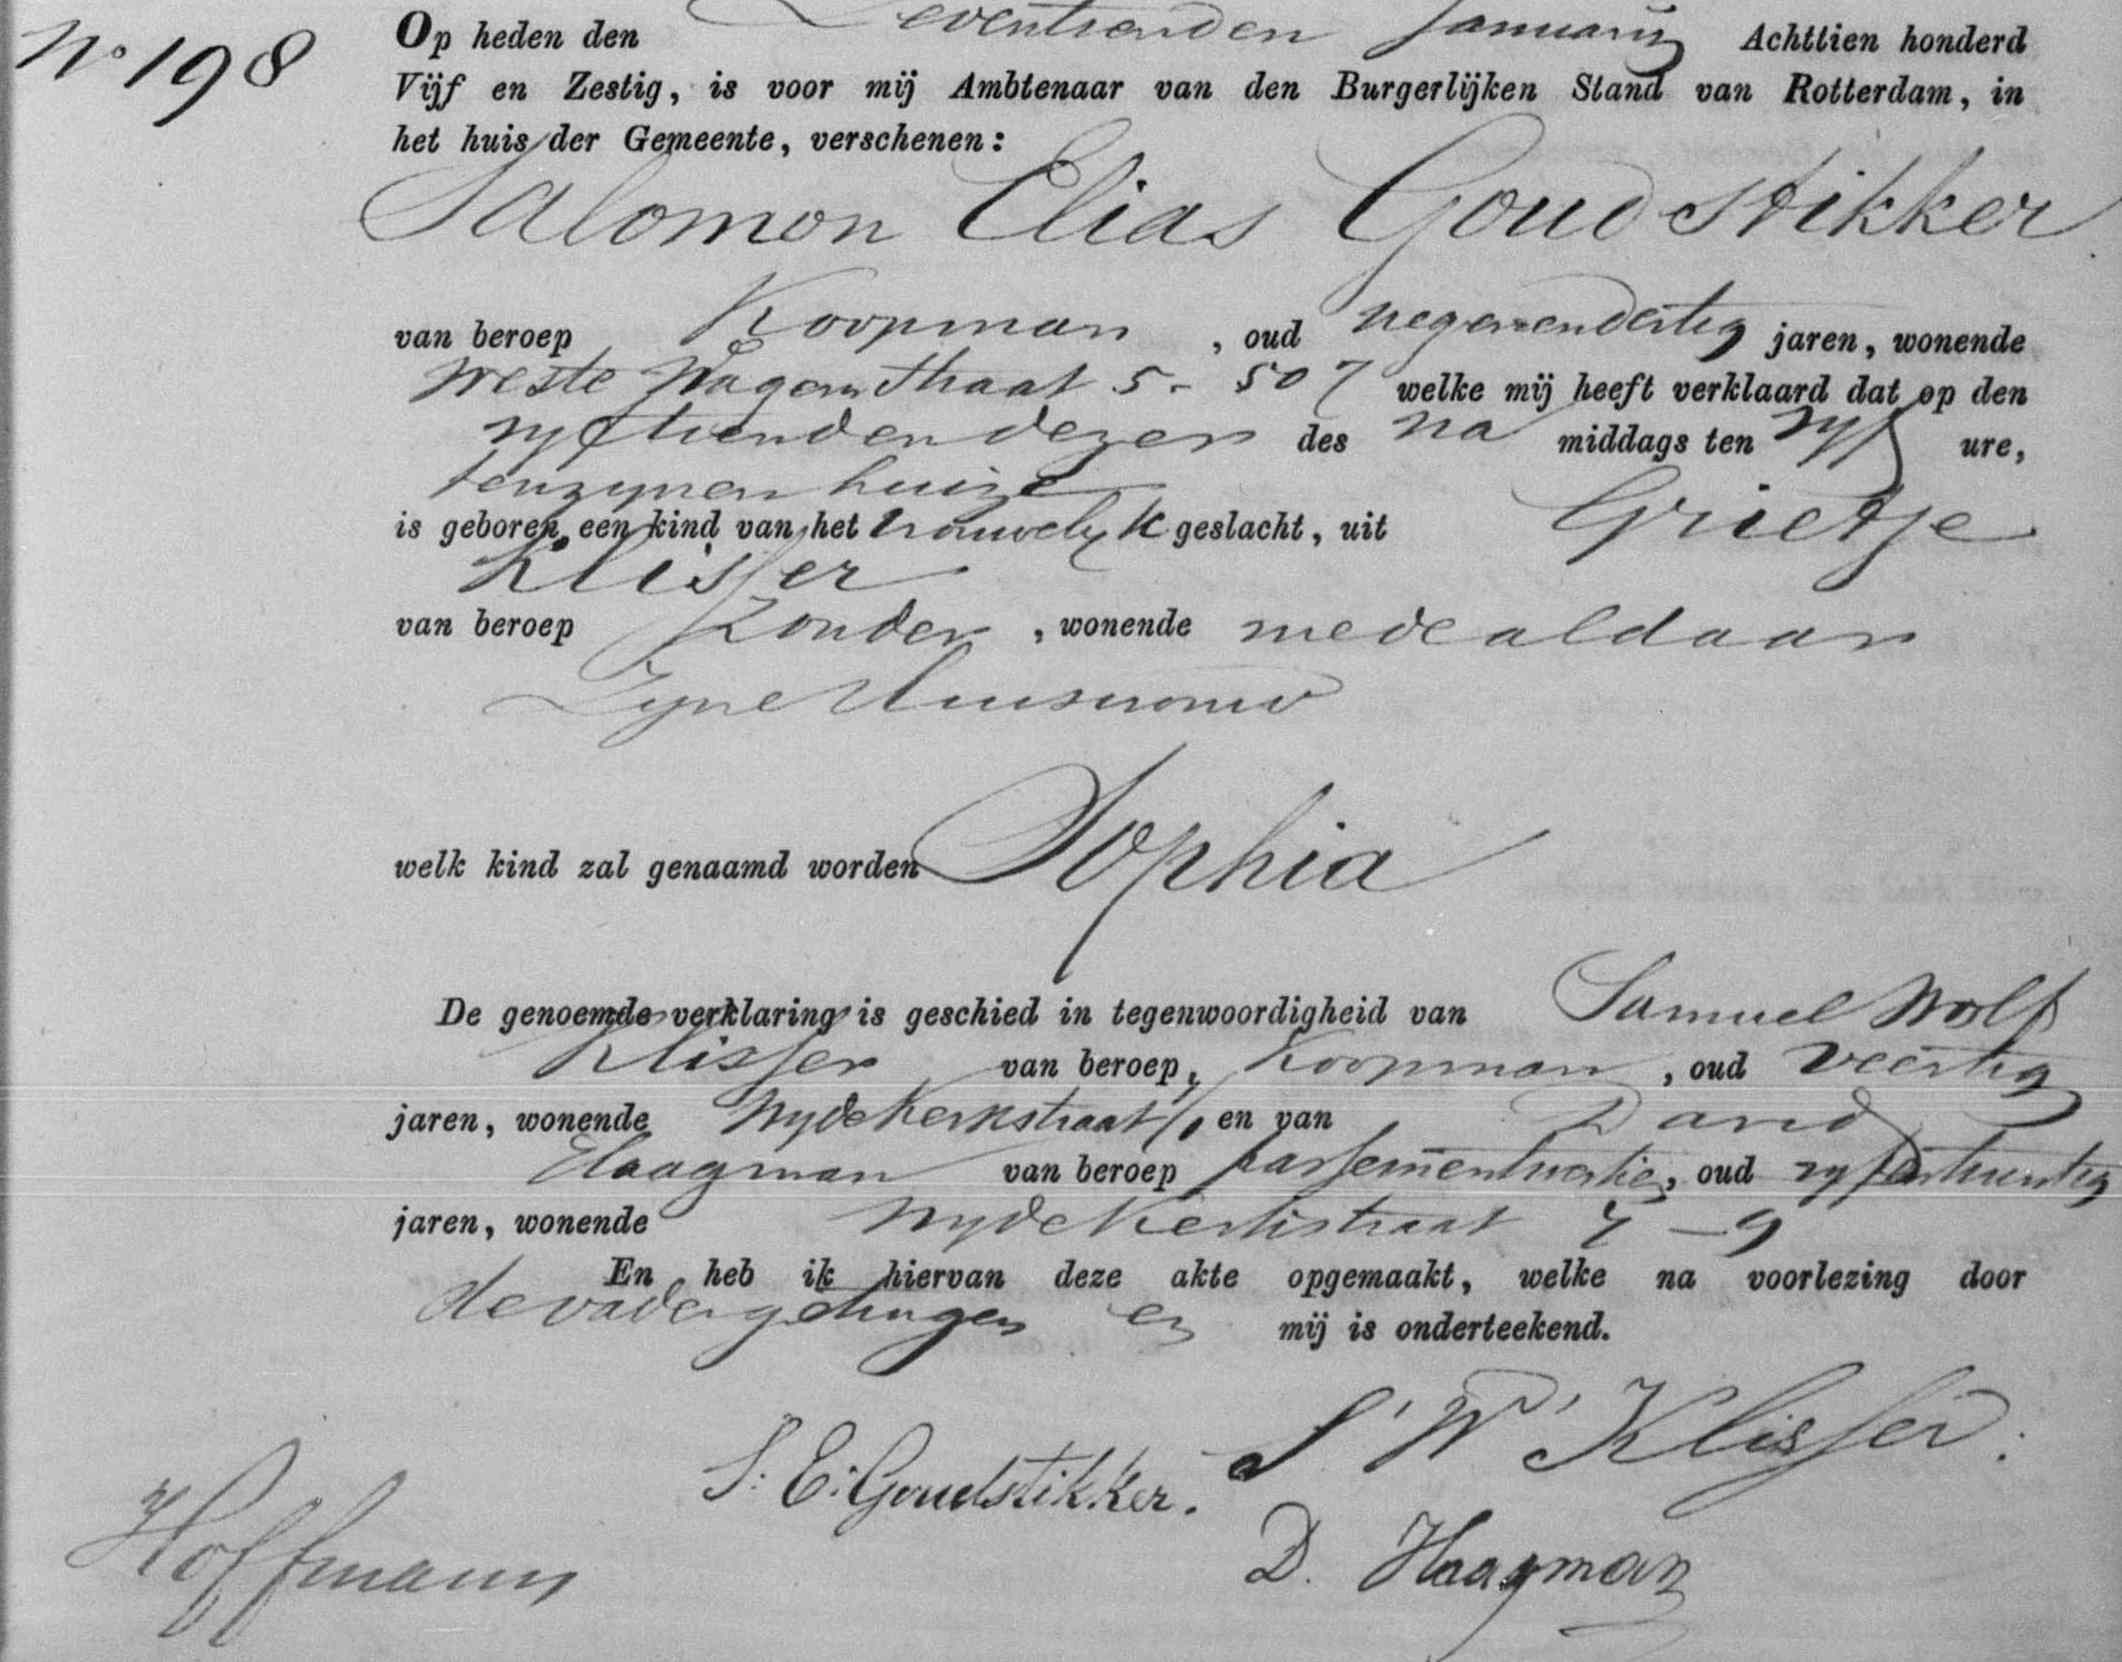 No 198
Op heden den Zeventienden Januarij Achttien honderd
Vijf en Zestig, is voor mij Ambtenaar van den Burgerlijken Stand van Rotterdam, in
het huis der Gemeente, verschenen:
Salomon Elias Goudstikker
van beroep Koopman, oud negenendertig jaren, wonende
Weste Wagenstraat 5 - 507 welke mij heeft verklaard dat op den
vyftienden dezer des na middags ten vyf ure,
tenzynen huize
is geboren een kind van het vrouwelyk geslacht, uit Grietje
Klisser
van beroep Zonder, wonende mede aldaar
Zyne Huisvrouw
welk kind zal genaamd worden Sophia
De genoemde verklaring is geschied in tegenwoordigheid van Samuel Wolf
Klisser van beroep, Koopman, oud veertig
jaren, wonende Wyde Kerkstraat en van David
Haagman van beroep passementwerker, oud vyfentwintig
jaren, wonende Wyde Kerkstraat 7 - 9
En heb ik hiervan deze akte opgemaakt, welke na voorlezing door
de vader getuigen en mij is onderteekend.
S. W. Klisser.
S. E. Goudstikker.
Hoffmann
D. Haagman